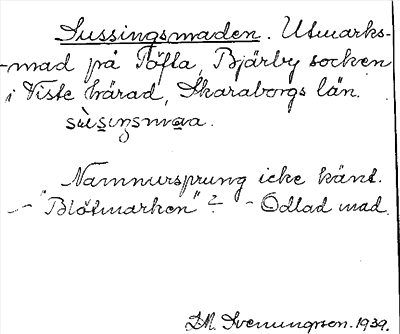 Sussingsmaden. Utmarks-
-mad på Töfta, Bjärby socken
i Viste härad, Skaraborgs län.
Namnursprung icke känt.
— "Blötmarken"? - Odlad mad.
D.M. Svenungson. 1939.